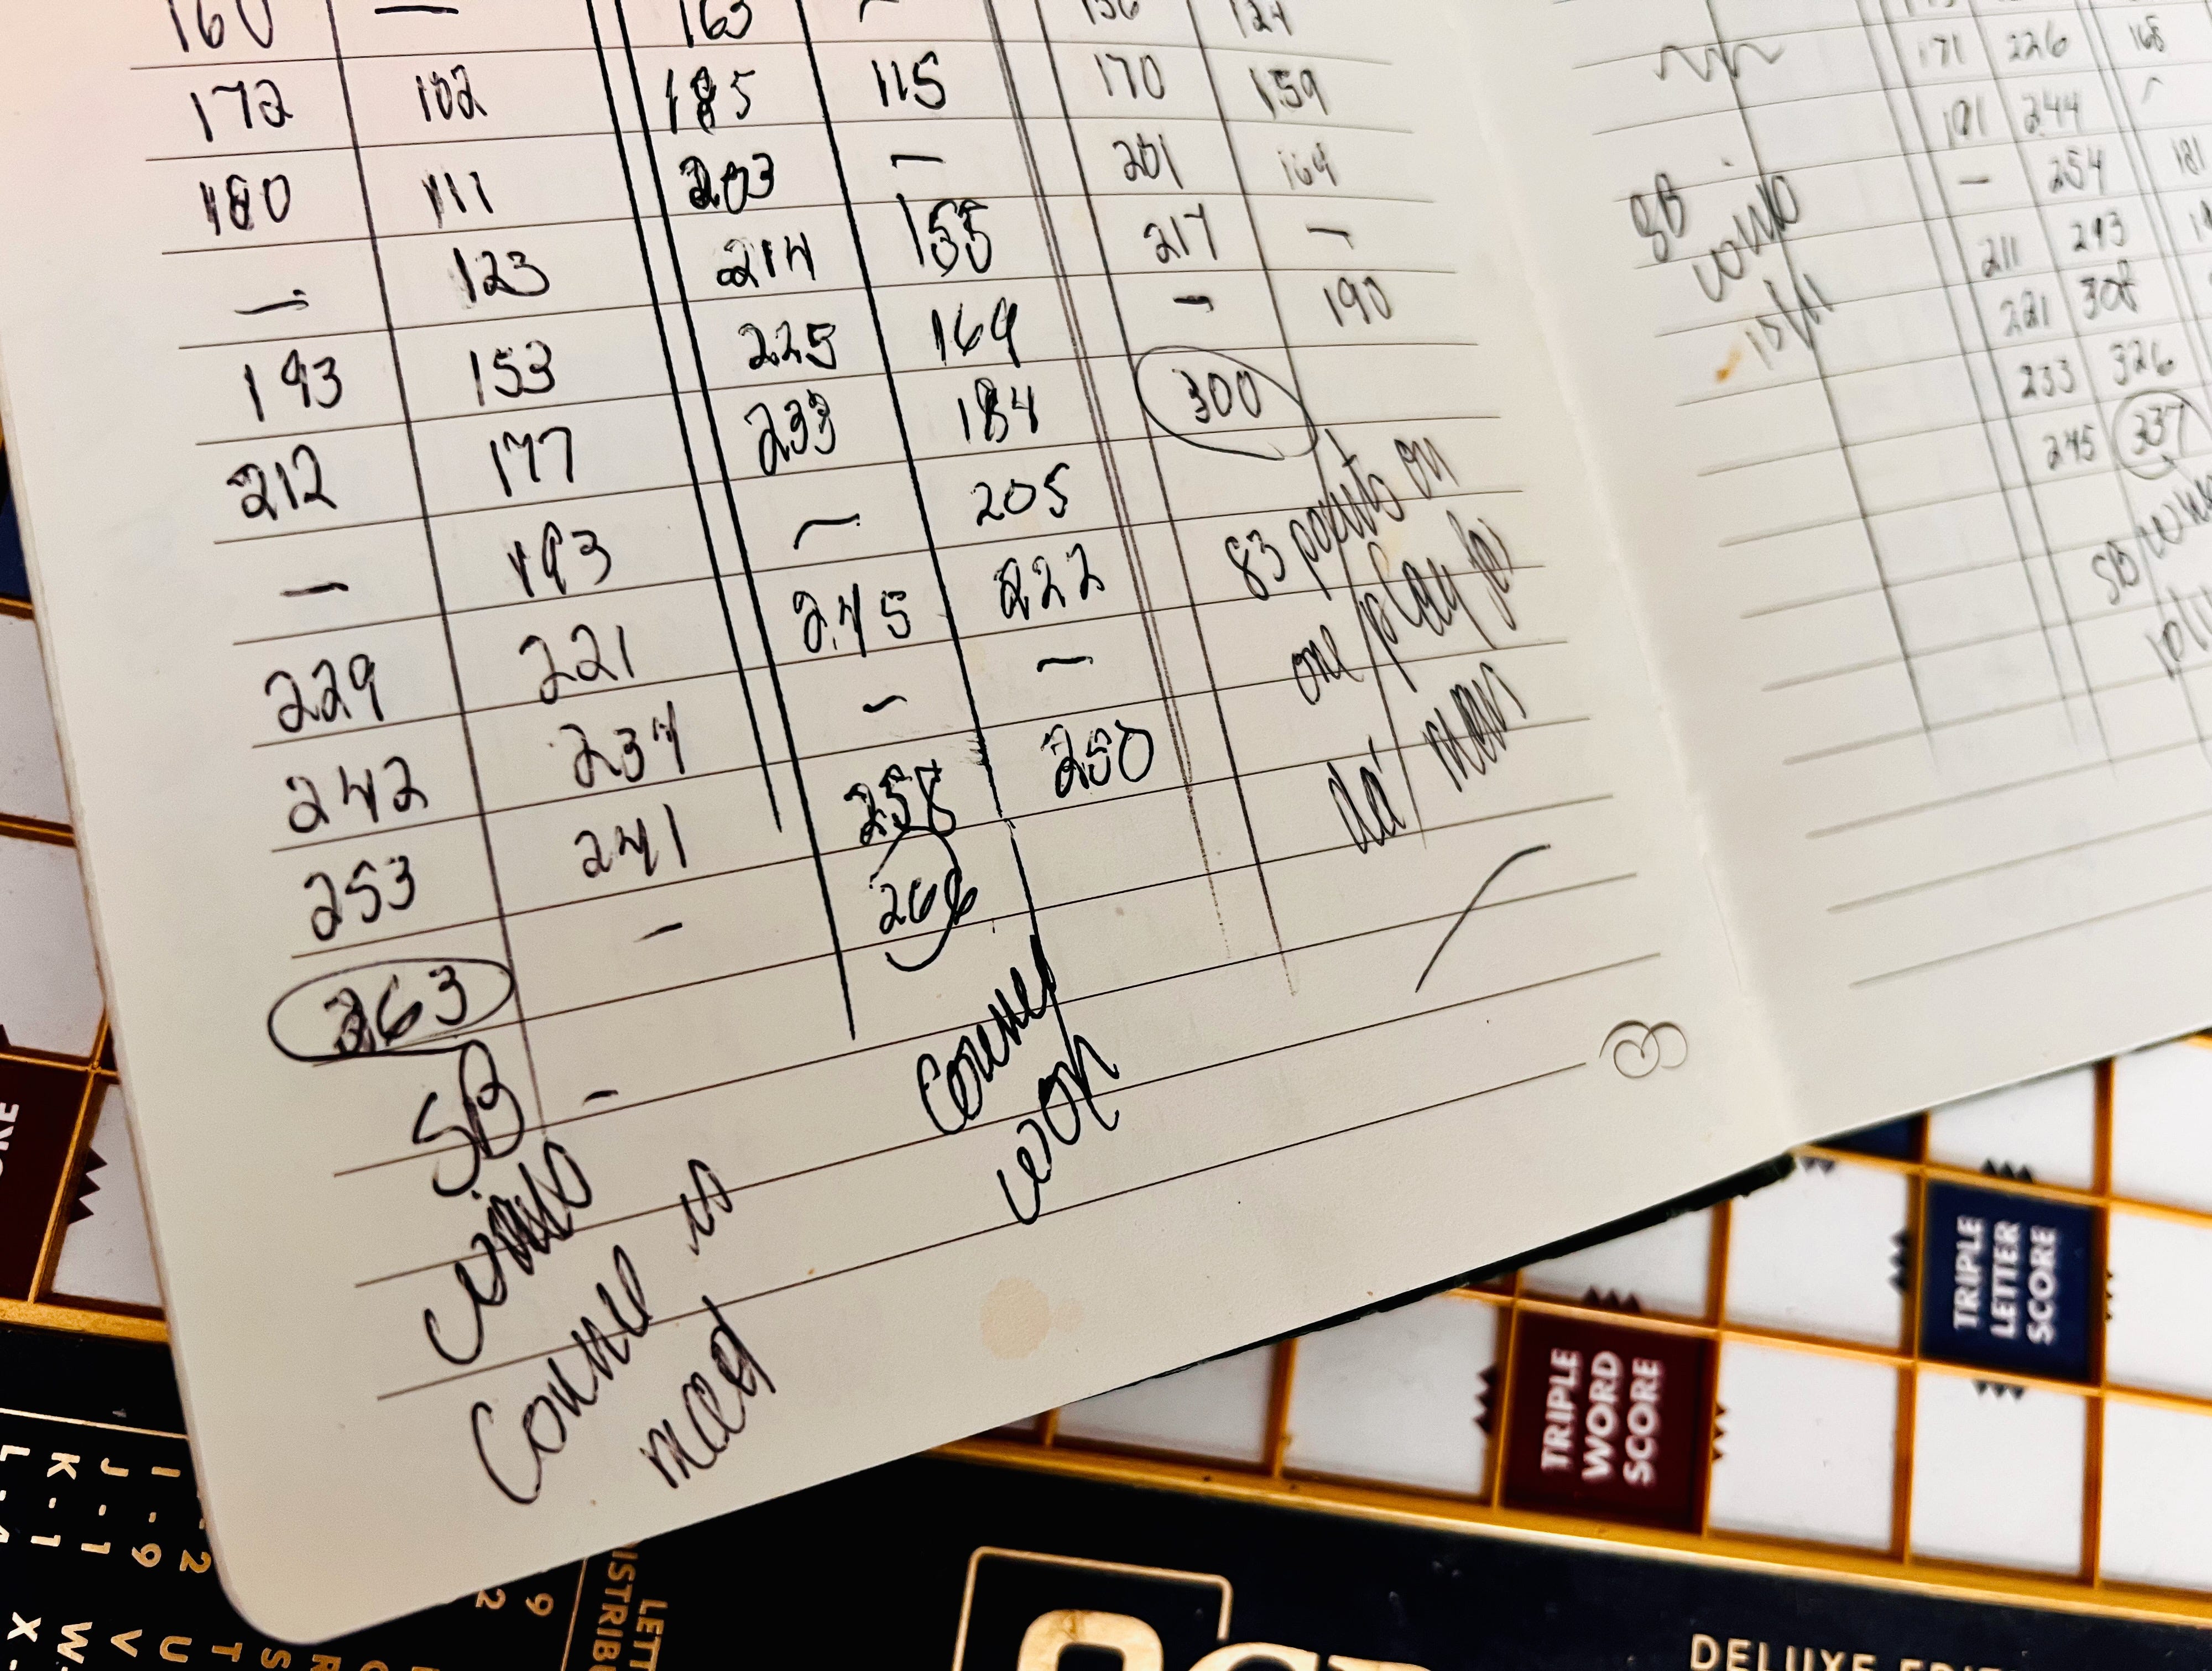 160 — 163 — 136 124
172 102 185 115 170 159
180 111 203 — 201 169
— 123 214 155 217 —
193 153 225 169 — 190
212 177 233 184 300
— 193 — 205
229 221 245 222
242 234 — —
253 241 258 250
263 — 266
SB —
wins
Connie is
mad
Connie
won
83 points on
one play for
da' man
171 226 168
191 244
— 254 181
211 293
221 308
233 326
245 337
SB
wins
10/11
SB
TRIPLE
LETTER
SCORE
TRIPLE
WORD
SCORE
I
J
K
L
R
S
T
U
V
W
X
DELUXE